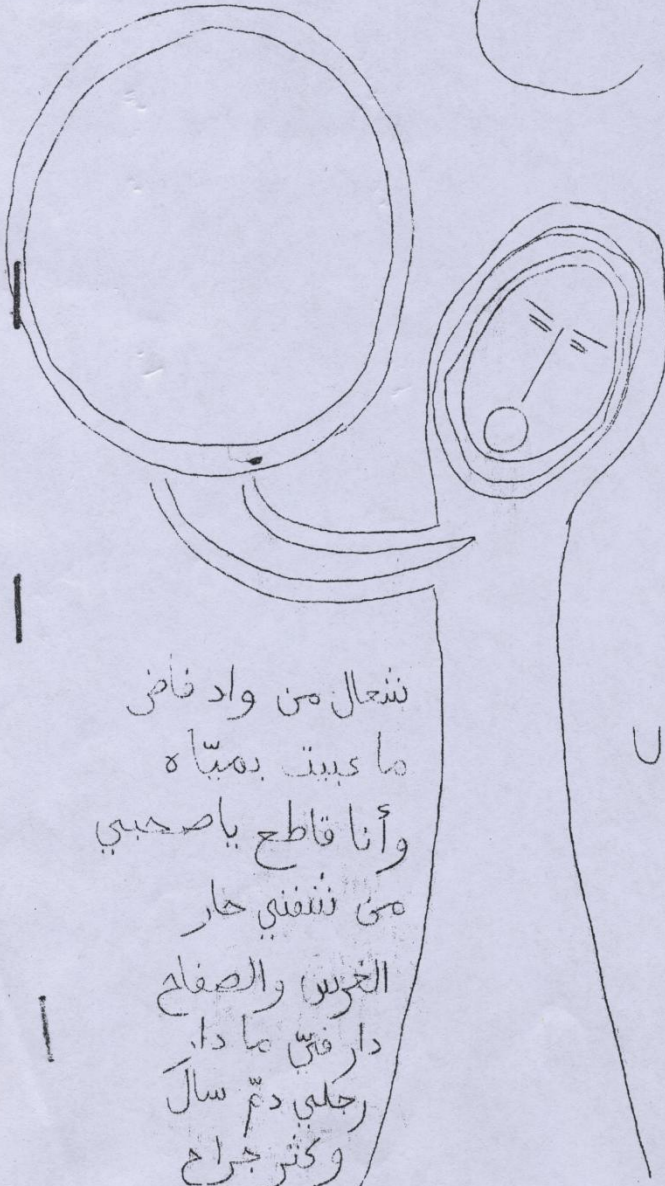 شحال من واد فاض
ما عبيت بميّاه
وأنا قاطع ياصحبي
من شفني حار
الغرس والصفاح
دار فيّ ما دار
رجلي دمّ سال
وكثر جراح